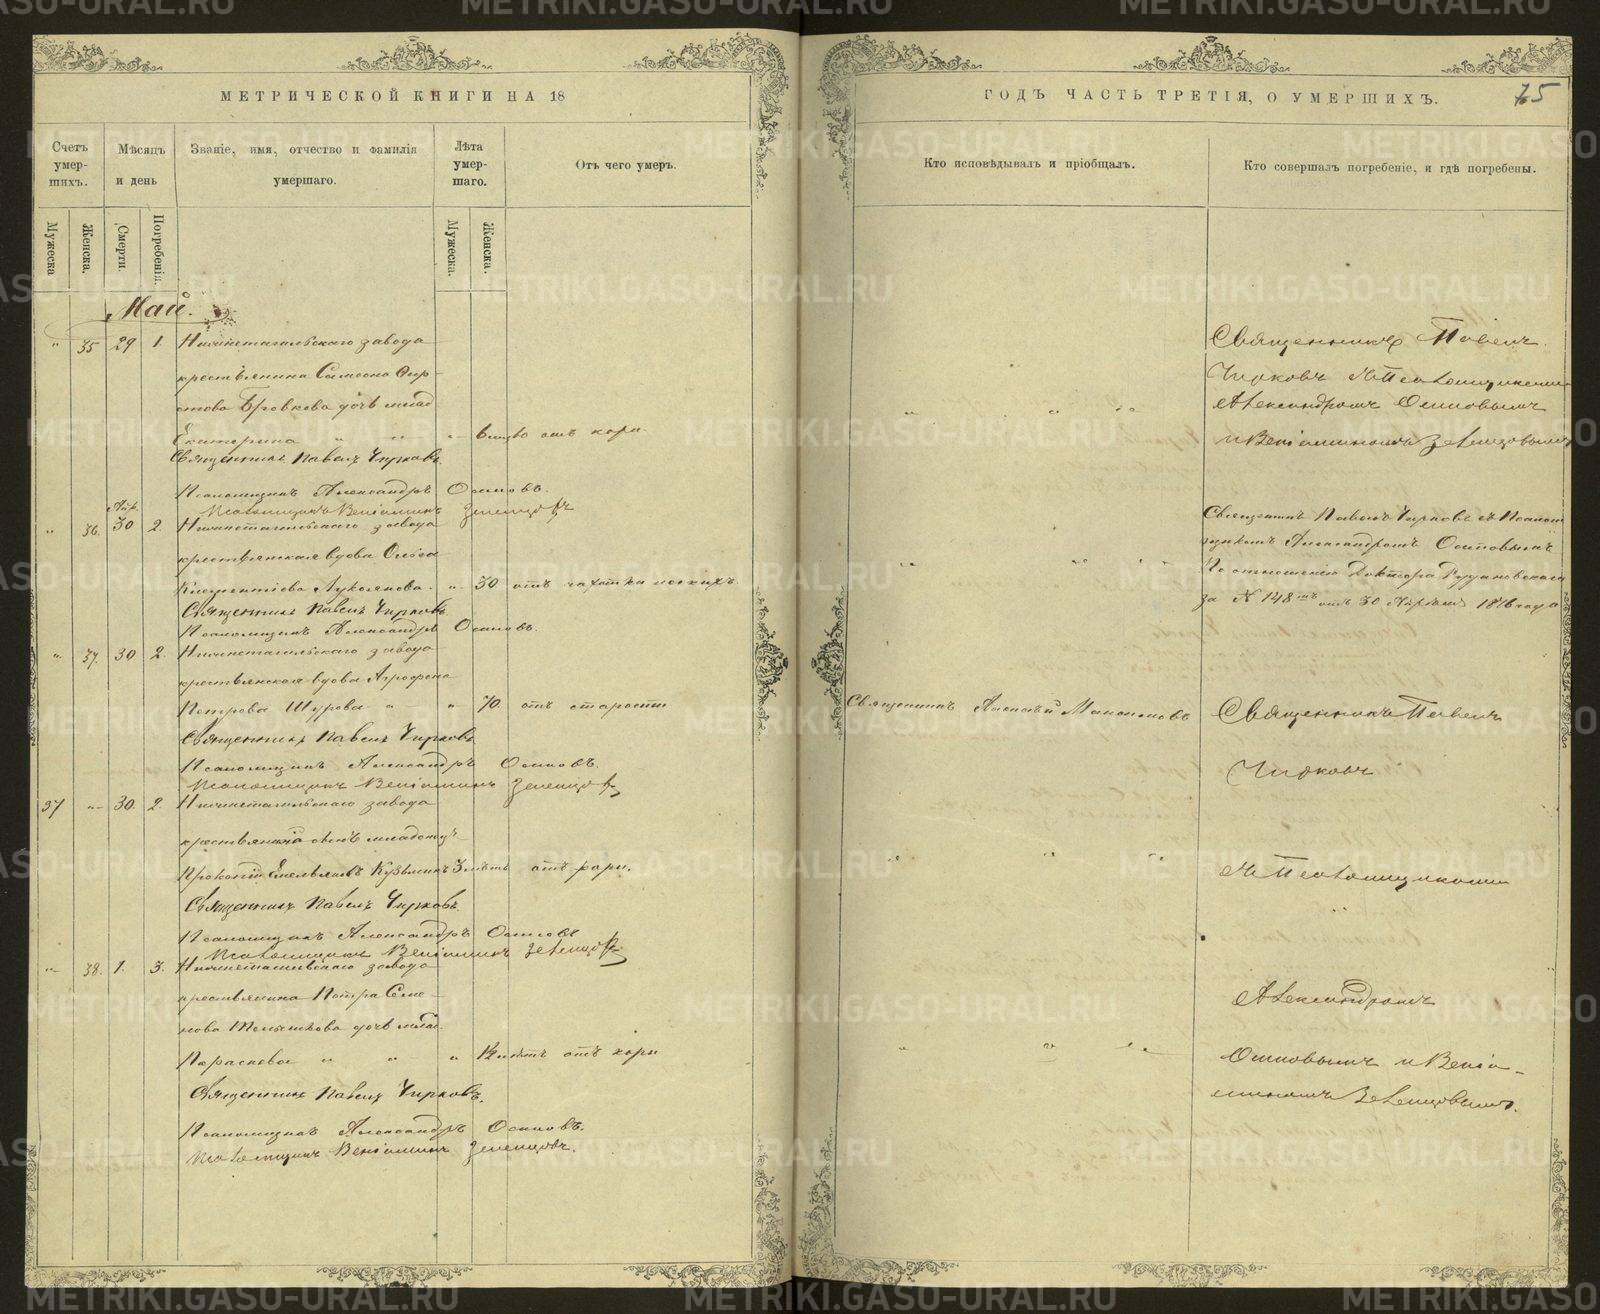 МЕТРИЧЕСКОЙ КНИГИ НА 18
Счетъ умер-шихъ.
Мѣсяцъ и день
Званіе, имя, отчество и фамилія умершаго.
Лѣта умер-шаго.
Отъ чего умеръ.
Мужеска
Женска.
Смерти.
Погребенія
Мужеска.
Женска.
Май.
" 35 29 1. Нижнетагильскаго завода
крестьянина Самсона
Бровкова дочь млад
Екатерина " " " отъ кори
Священникъ Павелъ Чирковъ.
Псаломщикъ Александръ Осиповъ.
Псаломщикъ Веніаминъ Зеленцовъ
Апр.
" 36. 30 2. Нижнетагильскаго завода
крестьянская вдова Ольга
Климентіева Лукоянова. " 30 отъ чахотки легкихъ.
Священникъ Павелъ Чирковъ
Псаломщикъ Александръ Осиповъ.
" 37. 30 2. Нижнетагильскаго завода
крестьянская вдова Агрофена
Петрова Шурова " " 70. отъ старости
Священникъ Павелъ Чирковъ
Псаломщикъ Александръ Осиповъ.
Псаломщикъ Веніаминъ Зеленцовъ
37 " 30. 2. Нижнетагильскаго завода
млад
Прокопій Емельяновъ Кузьминъ 3 лѣтъ отъ кори.
Священникъ Павелъ Чирковъ.
Псаломщикъ Александръ Осиповъ
Псаломщикъ Веніаминъ Зеленцовъ
" 38. 1. 3. Нижнетагильскаго завода
крестьянина Петра Семе-
нова дочь млад.
Парасковья " " " отъ кори
Священникъ Павелъ Чирковъ.
Псаломщикъ Александръ Осиповъ.
Псаломщикъ Веніаминъ Зеленцовъ.
ГОДЪ ЧАСТЬ ТРЕТІЯ, О УМЕРШИХЪ.
75
Кто исповѣдывалъ и пріобщалъ.
Кто совершалъ погребеніе, и гдѣ погребены.
Священникъ Павелъ
Чирковъ съ Псаломщиками
Александромъ Осиповымъ
и Веніаминомъ Зеленцовымъ
Священникъ Павелъ Чирковъ съ Псалом
щикомъ Александромъ Осиповымъ
По отношенію Доктора Рудановскаго
за № 148 отъ 30 Апрѣля 1876 года
Священникъ Алексѣй Максимовъ
Священникъ Павелъ
Чирковъ
съ Псаломщиками
Александромъ
Осиповымъ и Веніа-
миномъ Зеленцовымъ.
METRIKI.GASO-URAL.RU